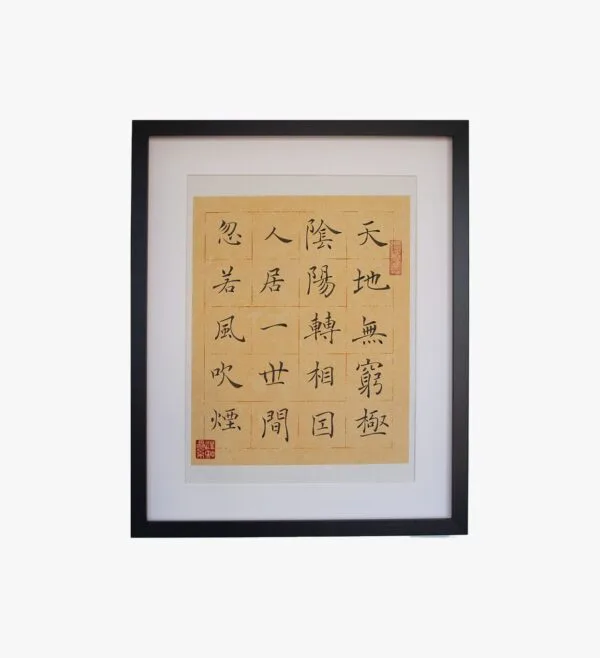 天地無窮極
陰陽轉相囙
人居一世間
忽若風吹煙